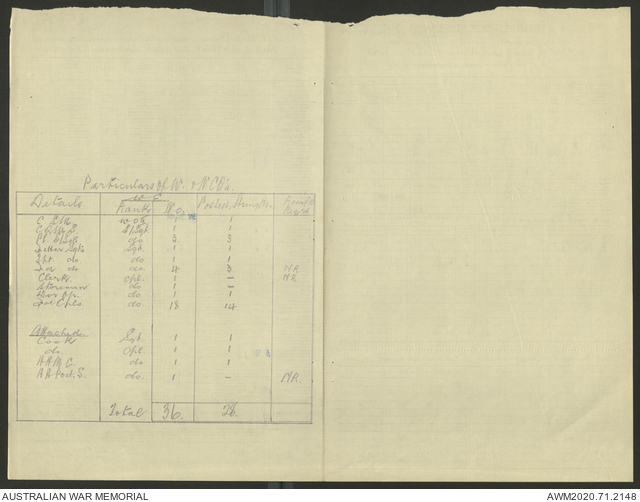 Particulars of W. & N.C.O's.
W E
Details Ranks No. Posted Strength
C.S.M. W.O.II 1 1
C.Q.M.S. S/Sgt. 1 1
Pl. S/Sgts do 3 3
Sgts Sgt. 1 1
do do 1 1
do do 4 3 NR
Clerk. Cpl. 1 — NR
Storeman do 1 —
do 1 1
Cpls do 18 14
Attached
Cook Sgt. 1 1
do. Cpl. 1 1
A.A.M.C. do 1 1
A.A. Post. S. do. 1 — NR.
Total 36. 28.
AUSTRALIAN WAR MEMORIAL
AWM2020.71.2148